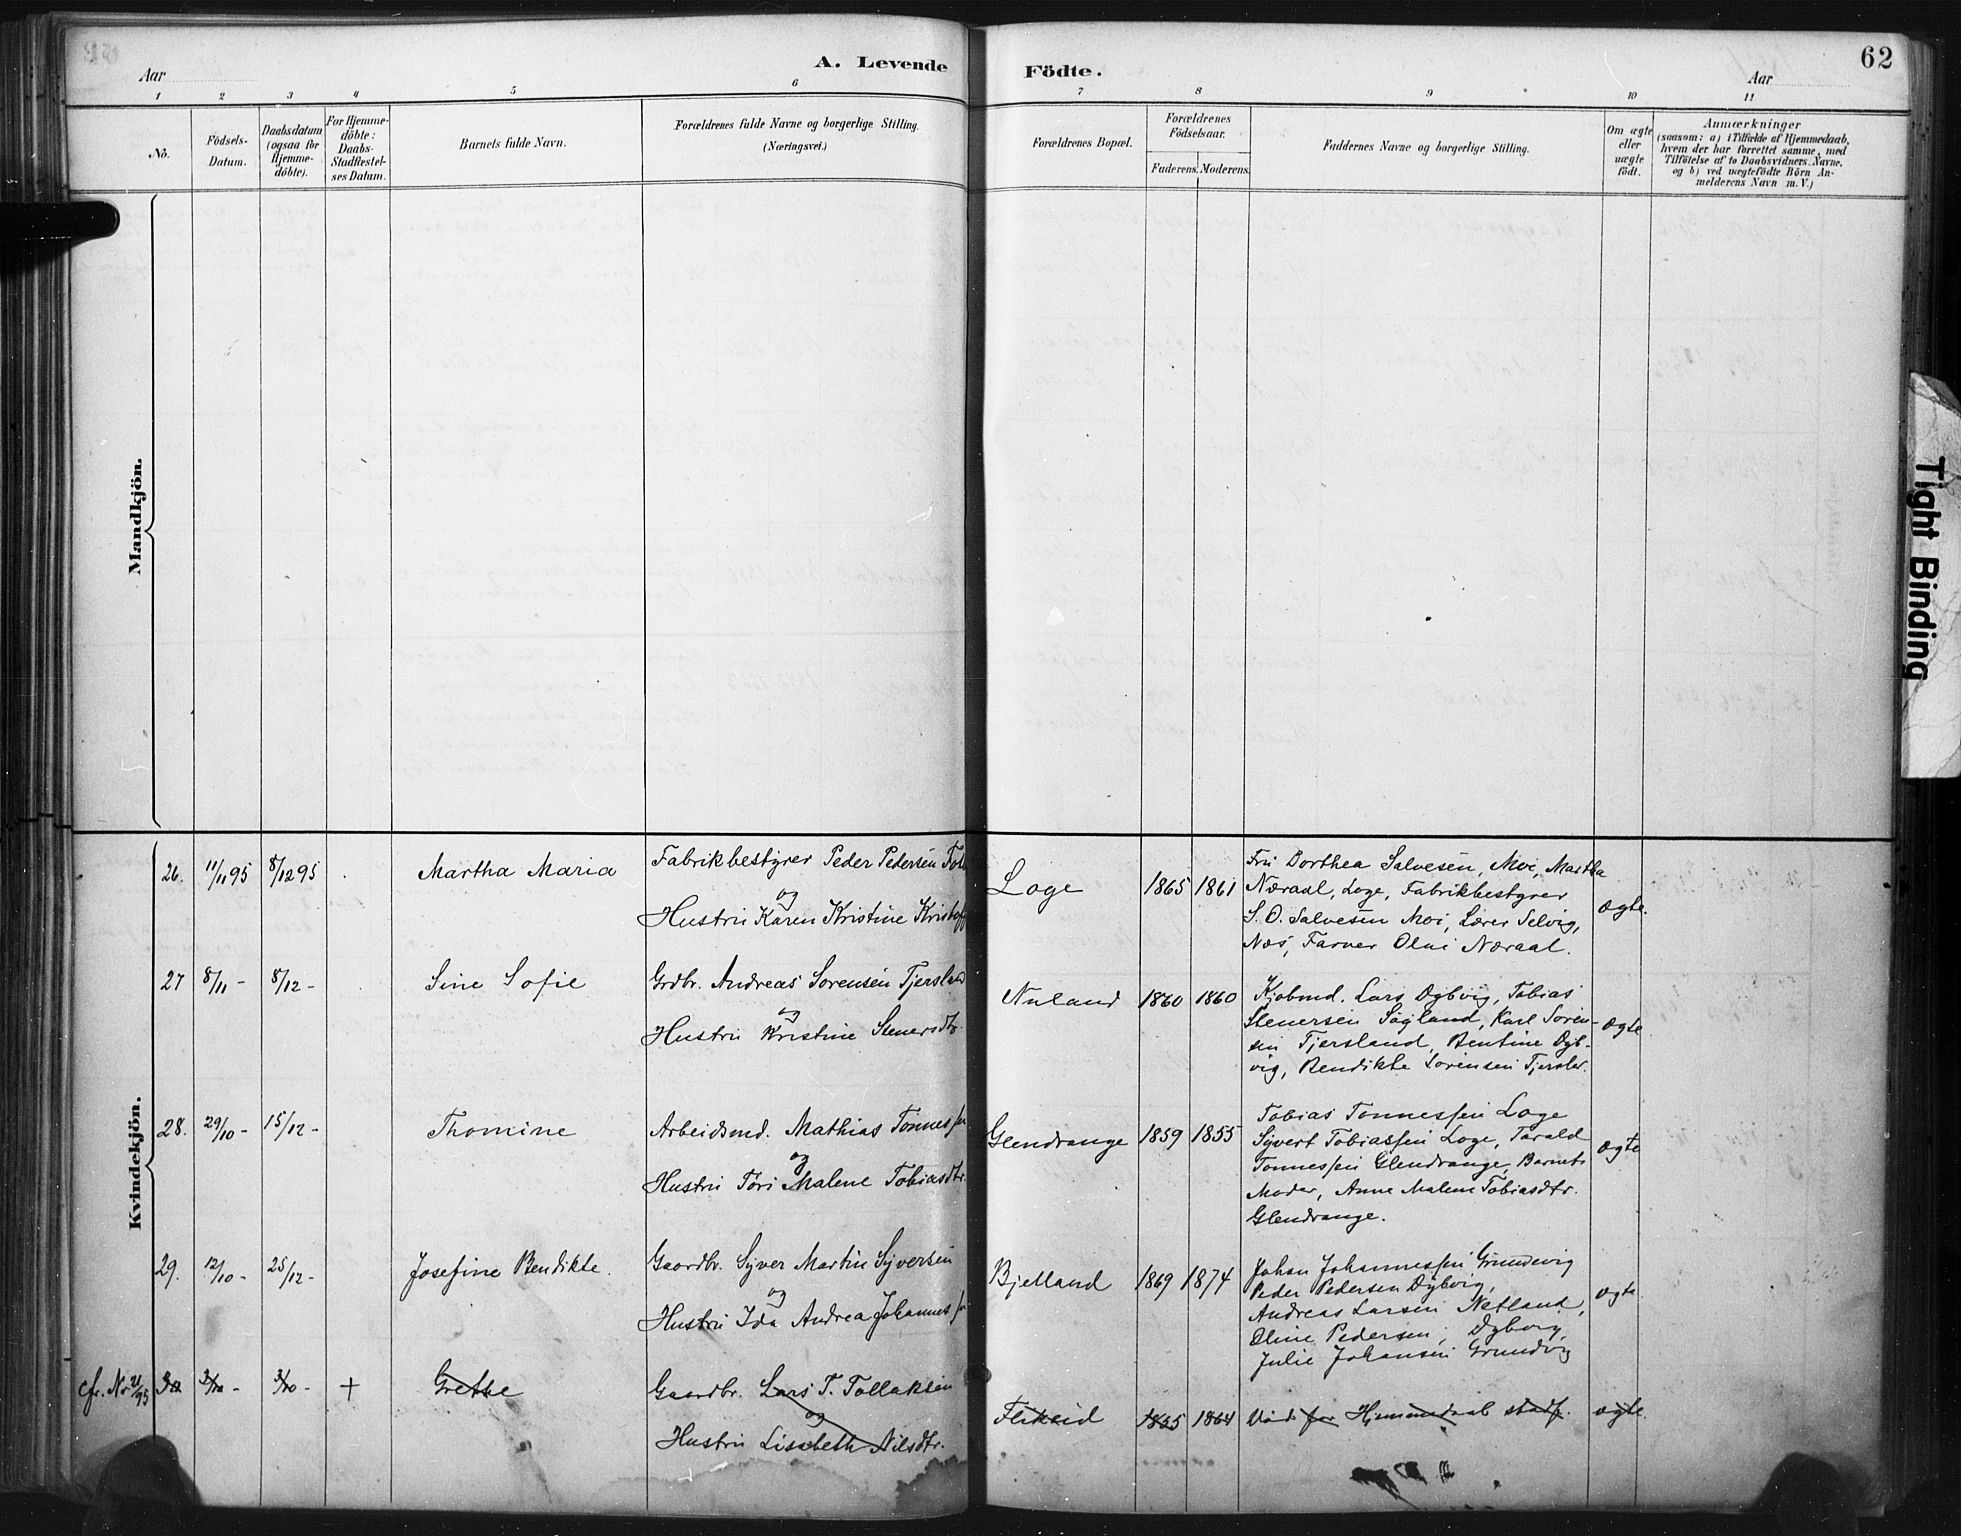 A. Levende Födte.
62
Aar
Aar
1 2 3 4 5 6 7 8 9 10 11
No.
Födsels-
Datum.
Daabsdatum
(ogsaa for
Hjemme-
döbte).
For Hjemme-
döbte:
Daabs-
Stadfæstel-
ses Datum.
Barnets fulde Navn.
Forældrenes fulde Navne og borgerlige Stilling.
(Næringsvei.)
Forældrenes Bopæl.
Forældrenes
Födselsaar.
Faderens. Moderens.
Faddernes Navne og borgerlige Stilling.
Om ægte
eller
uægte
födt.
Anmærkninger
(saasom: a) i Tilfælde af Hjemmedaab,
hvem der har forrettet samme, med
Tilföielse af to Daabsvidners Navne,
og b) ved uægtefödte Börn An-
melderens Navn m. V.)
Mandkjön.
Tight Binding
Kvindekjön.
26. 11/11 95 8/12 95
Martha Maria
Fabrikbestyrer Peder Pedersen
og
Hustru Karen Kristine
Loge
1865 1861
Fru Dorthea Salvesen, Moi, Martha
Næraal, Loge, Fabrikbestyrer
S. O. Salvesen Moi, Lærer Selvig,
Næs, Farver Olai Næraal.
ægte.
27 8/11 - 8/12 -
Sine Sofie
Grdbr. Andreas Sorensen Tjersland
og
Hustru Kristine Stenersdtr.
Nuland
1860 1860
Kjobmd. Lars Dybvig, Tobias
Stenersen Sogland, Karl Soren-
sen Tjersland, Bentine Dyb-
vig, Bendikte Sorensen
ægte
28. 29/10 - 15/12 -
Thomine
Arbeidsmd. Mathias Tonnessen
og
Hustru Tori Malene Tobiasdtr.
Glendrange
1859 1855
Tobias Tonnessen Loge
Syvert Tobiassen Loge, Tarald
Tonnessen Glendrange, Barnets
Moder, Anne Malene Tobiasdtr.
Glendrange.
ægte
29. 12/10 - 25/12 -
Josefine Bendikte.
Gaardbr. Syver Martin Syversen
og
Hustru Ida Andrea
Bjelland
1869 1874
Johan Johannessen Grundevig
Peder Pedersen Dybvig,
Andreas Larsen Netland,
Oline Pedersen, Dybvig
Julie Johansen Grundvig
ægte
cfr. No 21/95 30. 3/10 - 3/10 - +
Grethe
Gaardbr. Lars T. Tollaksen
og
Hustru Lisabeth Nilsdtr.
Flikeid
1855 1864
Död før Hjemmedaab stadf.
ægte.